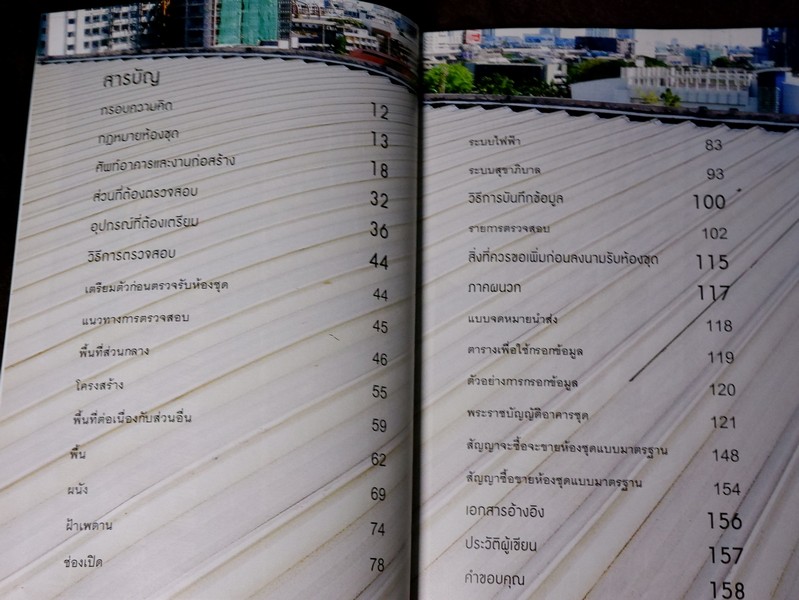 สารบัญ
กรอบความคิด 12
กฎหมายห้องชุด 13
ศัพท์อาคารและงานก่อสร้าง 18
ส่วนที่ต้องตรวจสอบ 32
อุปกรณ์ที่ต้องเตรียม 36
วิธีการตรวจสอบ 44
เตรียมตัวก่อนตรวจรับห้องชุด 44
แนวทางการตรวจสอบ 45
พื้นที่ส่วนกลาง 46
โครงสร้าง 55
พื้นที่ต่อเนื่องกับส่วนอื่น 59
พื้น 62
ผนัง 69
ฝ้าเพดาน 74
ช่องเปิด 78
ระบบไฟฟ้า 83
ระบบสุขาภิบาล 93
วิธีการบันทึกข้อมูล 100
รายการตรวจสอบ 102
สิ่งที่ควรขอเพิ่มก่อนลงนามรับห้องชุด 115
ภาคผนวก 117
แบบจดหมายนำส่ง 118
ตารางเพื่อใช้กรอกข้อมูล 119
ตัวอย่างการกรอกข้อมูล 120
พระราชบัญญัติอาคารชุด 121
สัญญาจะซื้อจะขายห้องชุดแบบมาตรฐาน 148
สัญญาซื้อขายห้องชุดแบบมาตรฐาน 154
เอกสารอ้างอิง 156
ประวัติผู้เขียน 157
คำขอบคุณ 158